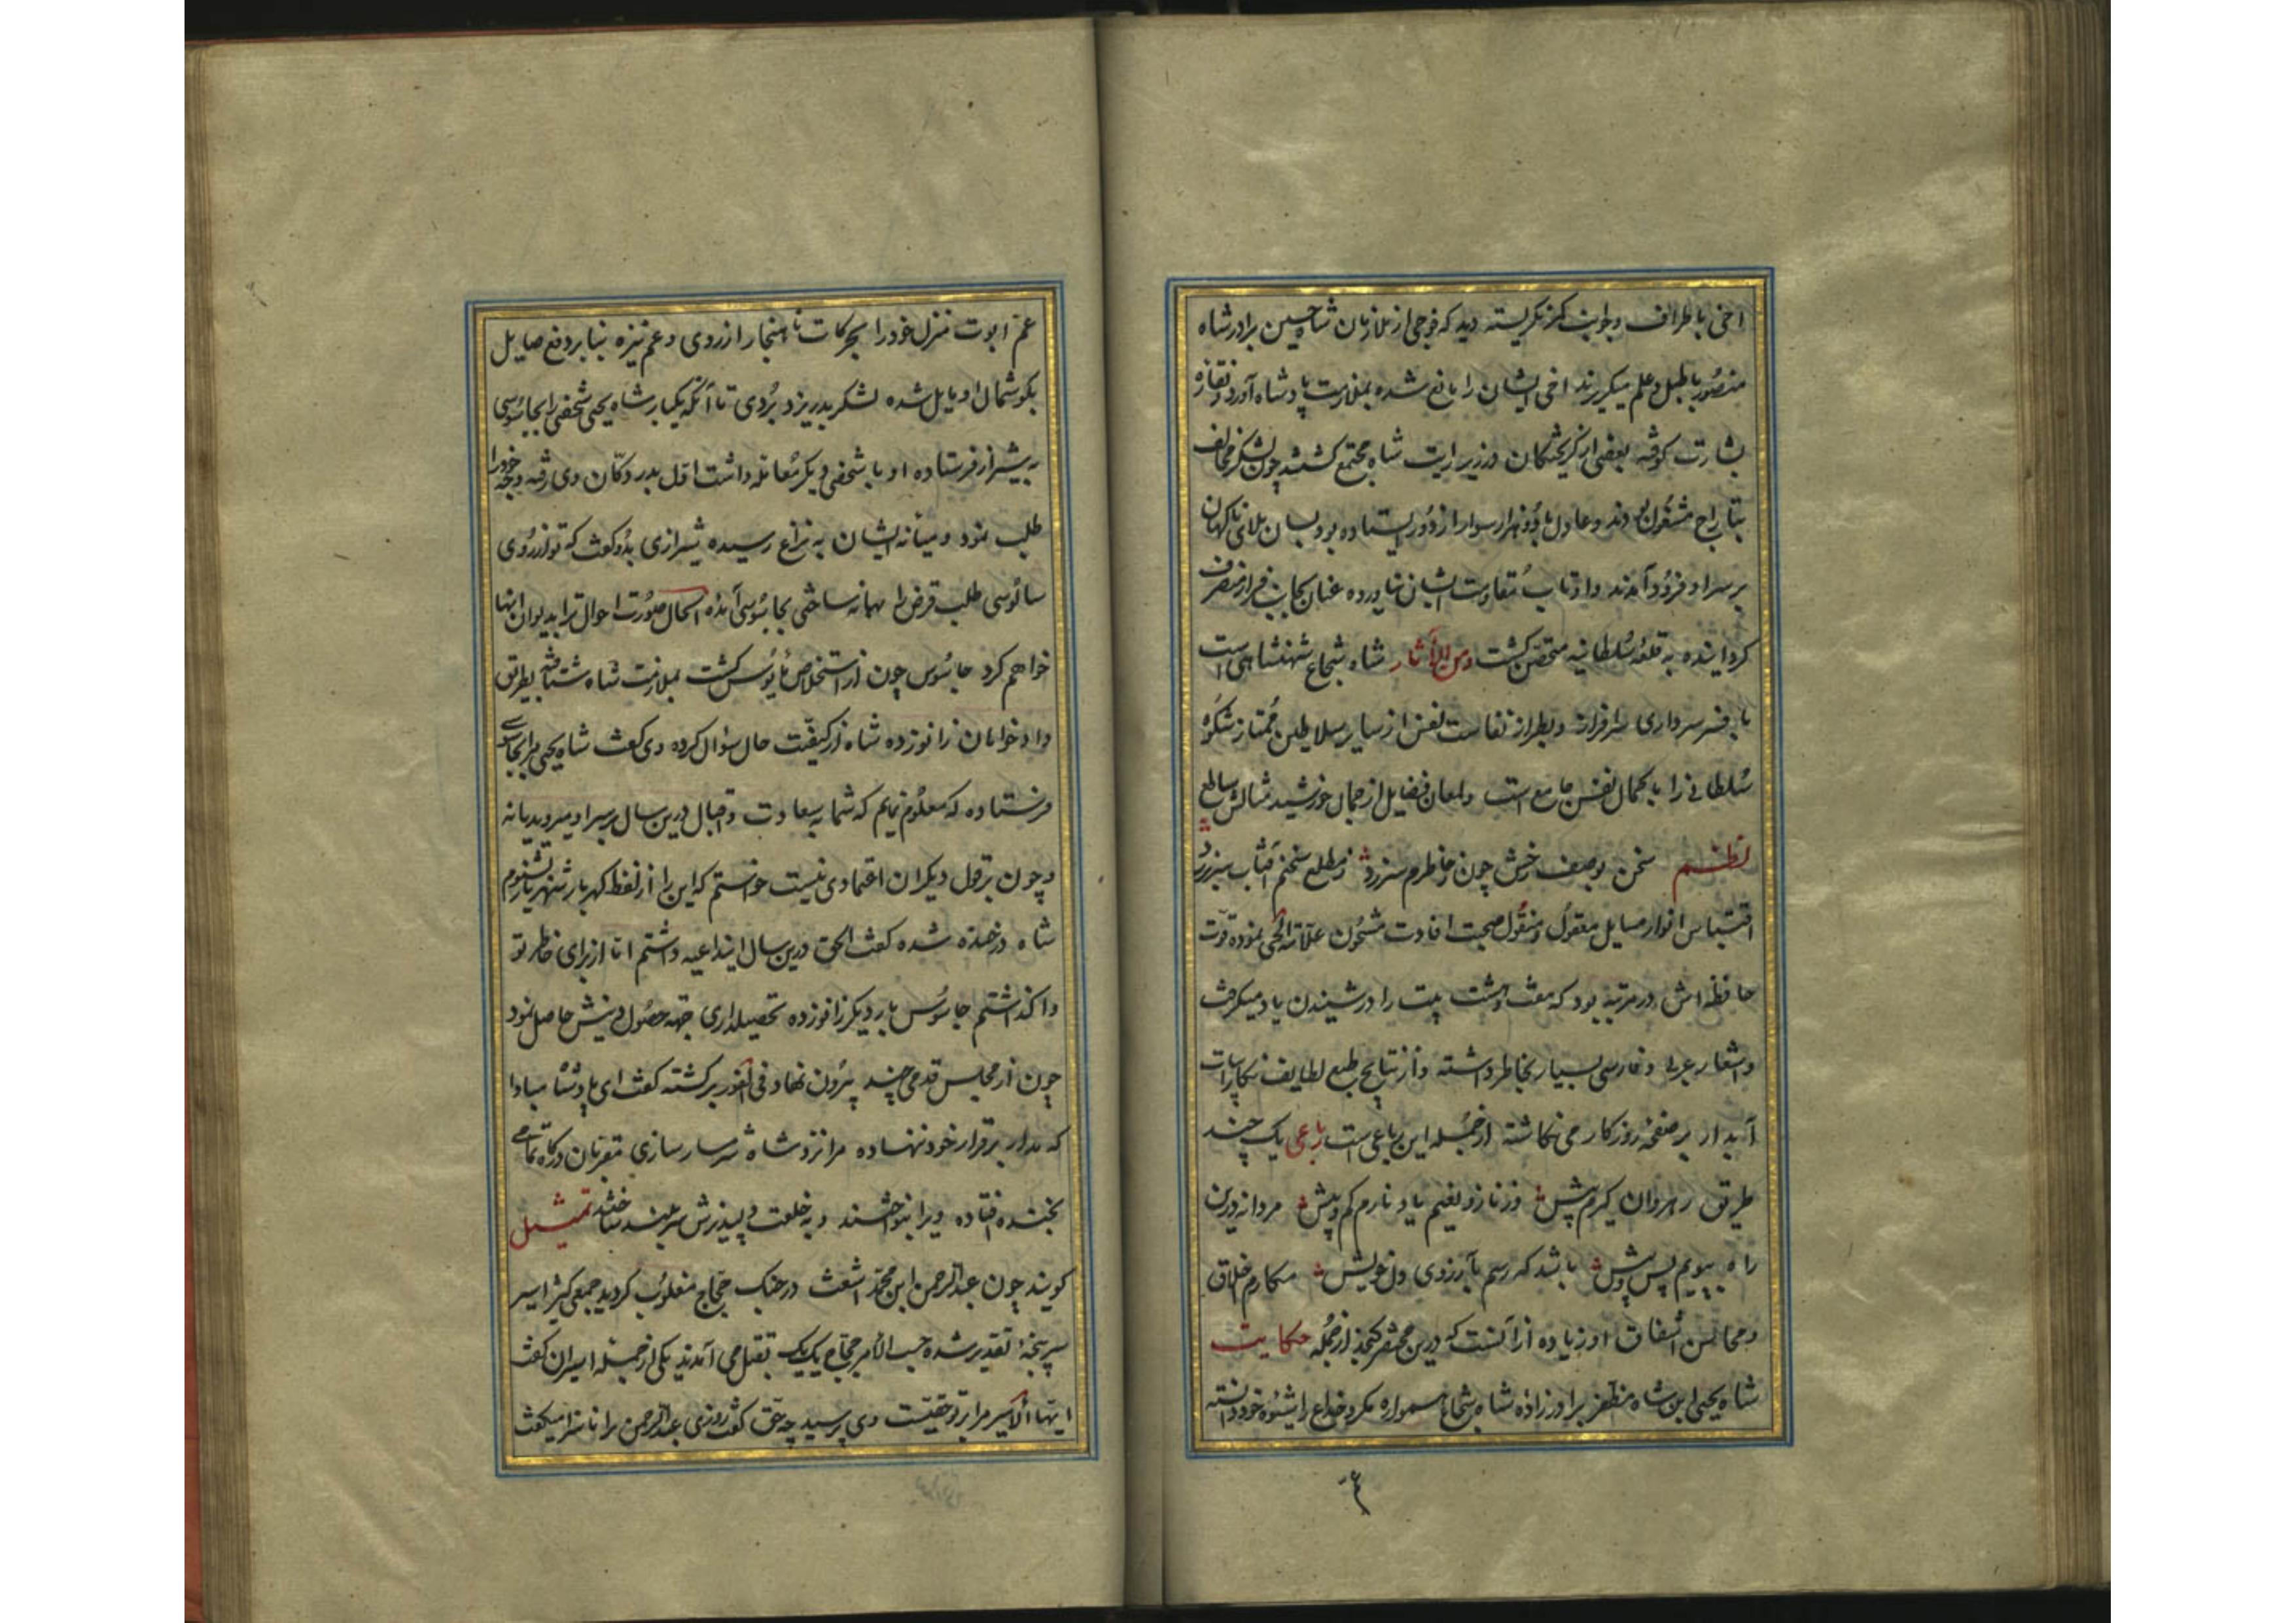 اخی باطراف و جوانب نگریسته دید که فوجی از ملازمان شاه حسین برادر شاه
منصور با طبل و علم میگریزند اخی ایشان را مانع شده بملازمت پادشاه آورد و نقاره
بشارت کوفته بعضی از گریختگان در زیر رایت شاه مجتمع گشتند چون لشکر مخالف
بتاراج مشغول بودند و عادل با دو هزار سوار از دور ایستاده بود بسان بلای ناگهان
بر سر او فرود آمدند و او تاب مقاومت ایشان نیاورده عنان بجانب فرار منصرف
گردانیده به قلعه سلطانیه متحصن گشت و من الآثار شاه شجاع شهنشاهی است
بافسر سرداری سرافراز و بطراز نفاست نفس از سایر سلاطین ممتاز شکوه
سلطانی را با کمال نفس جامع است و لمعان فضایل از جمال خورشید مثالش ساطع
نظم سخن بوصف رخش چون ز خاطرم سر زد ز مطلع سخنم آفتاب سر بر زد
اقتباس انوار مسایل معقول و منقول صحبت افادت مشحون علامة الحی نموده قوت
حافظه اش در مرتبه بود که هفت و هشت بیت را در شنیدن یاد میگرفت
و اشعار عربی و فارسی بسیار بخاطر داشته و از نتایج طبع لطایف نگار ابیات
آبدار بر صفحه روزگار می نگاشته از جمله این رباعی است رباعی یک چند
طریق رهروان گیرم پیش وز ناز و نعیم یاد نارم کم و بیش مردانه درین
راه بپویم پس و پیش باشد که رسم بآرزوی دل خویش مکارم اخلاق
و محاسن اشفاق او زیاده از آنست که درین مختصر گنجد از جمله حکایت
شاه یحیی ابن شاه مظفر برادرزاده شاه شجاع همواره مکر و خداع را شیوه خود دانسته
ع
عم ابوت منزل خود را بحرکات ناهنجار آزردی و عم نیزه بنابر دفع صایل
بگوشمال او مایل شده لشکر بدر یزد بردی تا آنکه یکبار شاه یحیی شخصی را بجاسوسی
به شیراز فرستاده او با شخصی دیگر معامله داشت اول بدر دکان وی رفته وجه خود را
طلب نمود و میانه ایشان به نزاع رسیده شیرازی بدو گفت که تو از روی
سالوسی طلب قرض را بهانه ساختی بجاسوسی آمده الحال صورت احوال ترا بدیوان انها
خواهم کرد جاسوس چون از استخلاص مأیوس گشت بملازمت شاه شتافته بطریق
دادخواهان زانو زده شاه از کیفیت حال سؤال کرده وی گفت شاه یحیی مرا بجاسوسی
فرستاده که معلوم نمایم که شما به سعادت و اقبال درین سال بر سر او میروید یا نه
و چون بر قول دیگران اعتمادی نیست خواستم که این را از لفظ گهربار شهریار بشنوم
شاه در خنده شده گفت الحق درین سال این داعیه داشتم اما از برای خاطر تو
واگذاشتم جاسوس بار دیگر زانو زده تحصیلداری جهة حصول وجهش حاصل نمود
چون از مجلس قدمی چند بیرون نهاد فی الفور برگشته گفت ای پادشاه مبادا
که مدار بر قرار خود ننهاده مرا نزد شاه شرمسار سازی مقربان درگاه تمامی
بخنده افتاده ویرا بنواختند و به خلعت دلپذیرش سربلند ساختند تمثیل
گویند چون عبدالرحمن ابن محمد اشعث در جنگ حجاج مغلوب گردید جمعی کثیر اسیر
سرپنجهٔ تقدیر شده حسب الامر حجاج یک یک بقتل می آمدند یکی از جمله اسیران گفت
ایها الامیر مرا بر تو حقیست وی پرسید چه حق گفت روزی عبدالرحمن ترا ناسزا میگفت